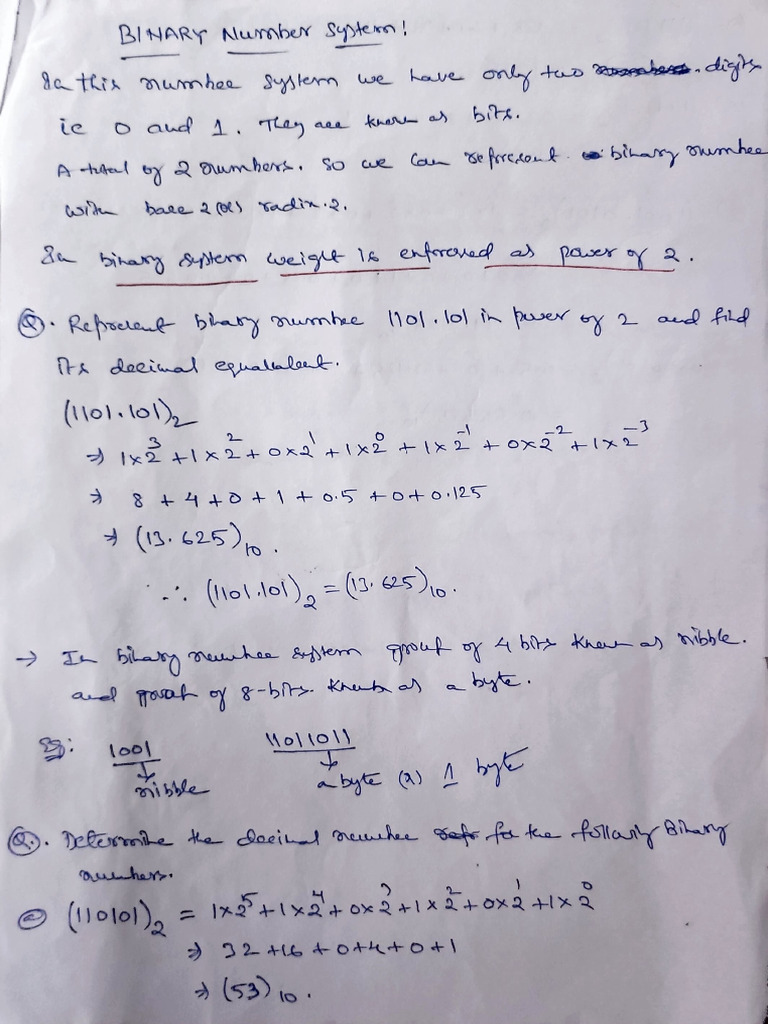 BINARY Number System!
In this number system we have only two numbers. digits
ie 0 and 1. They are known as bits.
A total of 2 numbers. So we can represent binary number
with base 2 (or) radix 2.
In binary system weight is enforced as power of 2.
Q. Represent binary number 1101.101 in power of 2 and find
its decimal equalalent.
(1101.101)₂
⇒ 1×2³ + 1×2² + 0×2¹ + 1×2⁰ + 1×2⁻¹ + 0×2⁻² + 1×2⁻³
⇒ 8 + 4 + 0 + 1 + 0.5 + 0 + 0.125
⇒ (13.625)₁₀.
∴ (1101.101)₂ = (13.625)₁₀.
→ In binary number system group of 4 bits known as nibble.
and group of 8-bits. known as a byte.
Eg: 1001 11011011
↓ nibble ↓ a byte (or) 1 byte
Q. Determine the decimal number for the following Binary
numbers.
a (110101)₂ = 1×2⁵ + 1×2⁴ + 0×2³ + 1×2² + 0×2¹ + 1×2⁰
⇒ 32 + 16 + 0 + 4 + 0 + 1
⇒ (53)₁₀.